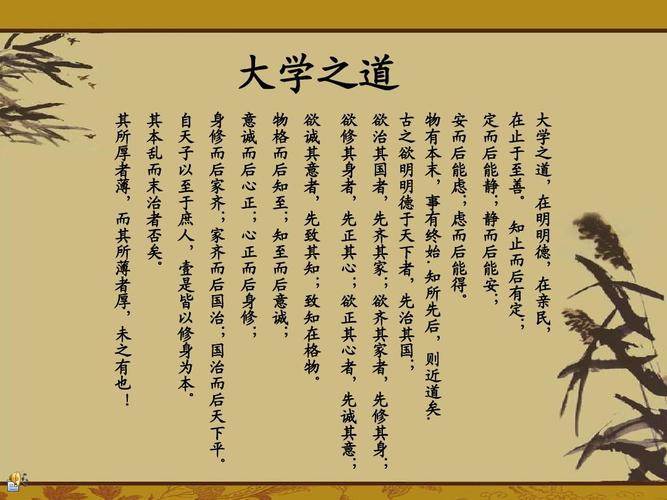 大学之道
大学之道，在明明德，在亲民，
在止于至善。 知止而后有定；
定而后能静；静而后能安；
安而后能虑；虑而后能得。
物有本末，事有终始.知所先后，则近道矣.
古之欲明明德于天下者，先治其国；
欲治其国者，先齐其家；欲齐其家者，先修其身；
欲修其身者，先正其心；欲正其心者，先诚其意；
欲诚其意者，先致其知；致知在格物。
物格而后知至；知至而后意诚；
意诚而后心正；心正而后身修；
身修而后家齐；家齐而后国治；国治而后天下平。
自天子以至于庶人，壹是皆以修身为本。
其本乱而末治者否矣。
其所厚者薄，而其所薄者厚，未之有也！